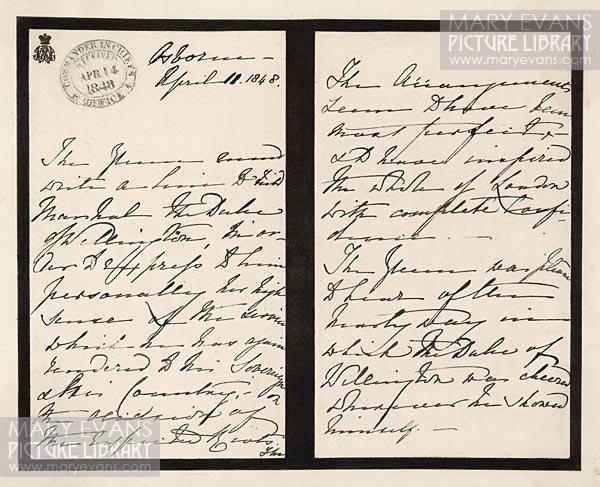 MARY EVANS
PICTURE LIBRARY
www.maryevans.com
COMMANDER IN CHIEF'S
RECEIVED
APR. 14
1848
OFFICE
Osborne –
April 11. 1848.
The Queen
write a line to Field
Marshal the Duke
of Wellington, in or-
der to express to him
personally her high
sense of the service
which he has again
rendered to his Sovereign
& this Country – on
the occasion of
the Riots.
The
The Arrangements
seem to have been
most perfect &
to have inspired
the whole of London
with complete Confi-
dence. –
The Queen was
to hear of the
way in
which the Duke of
Wellington was cheered
whenever he showed
himself. –
MARY EVANS
PICTURE LIBRARY
www.maryevans.com
MARY EVANS
PICTURE LIBRARY
www.maryevans.com